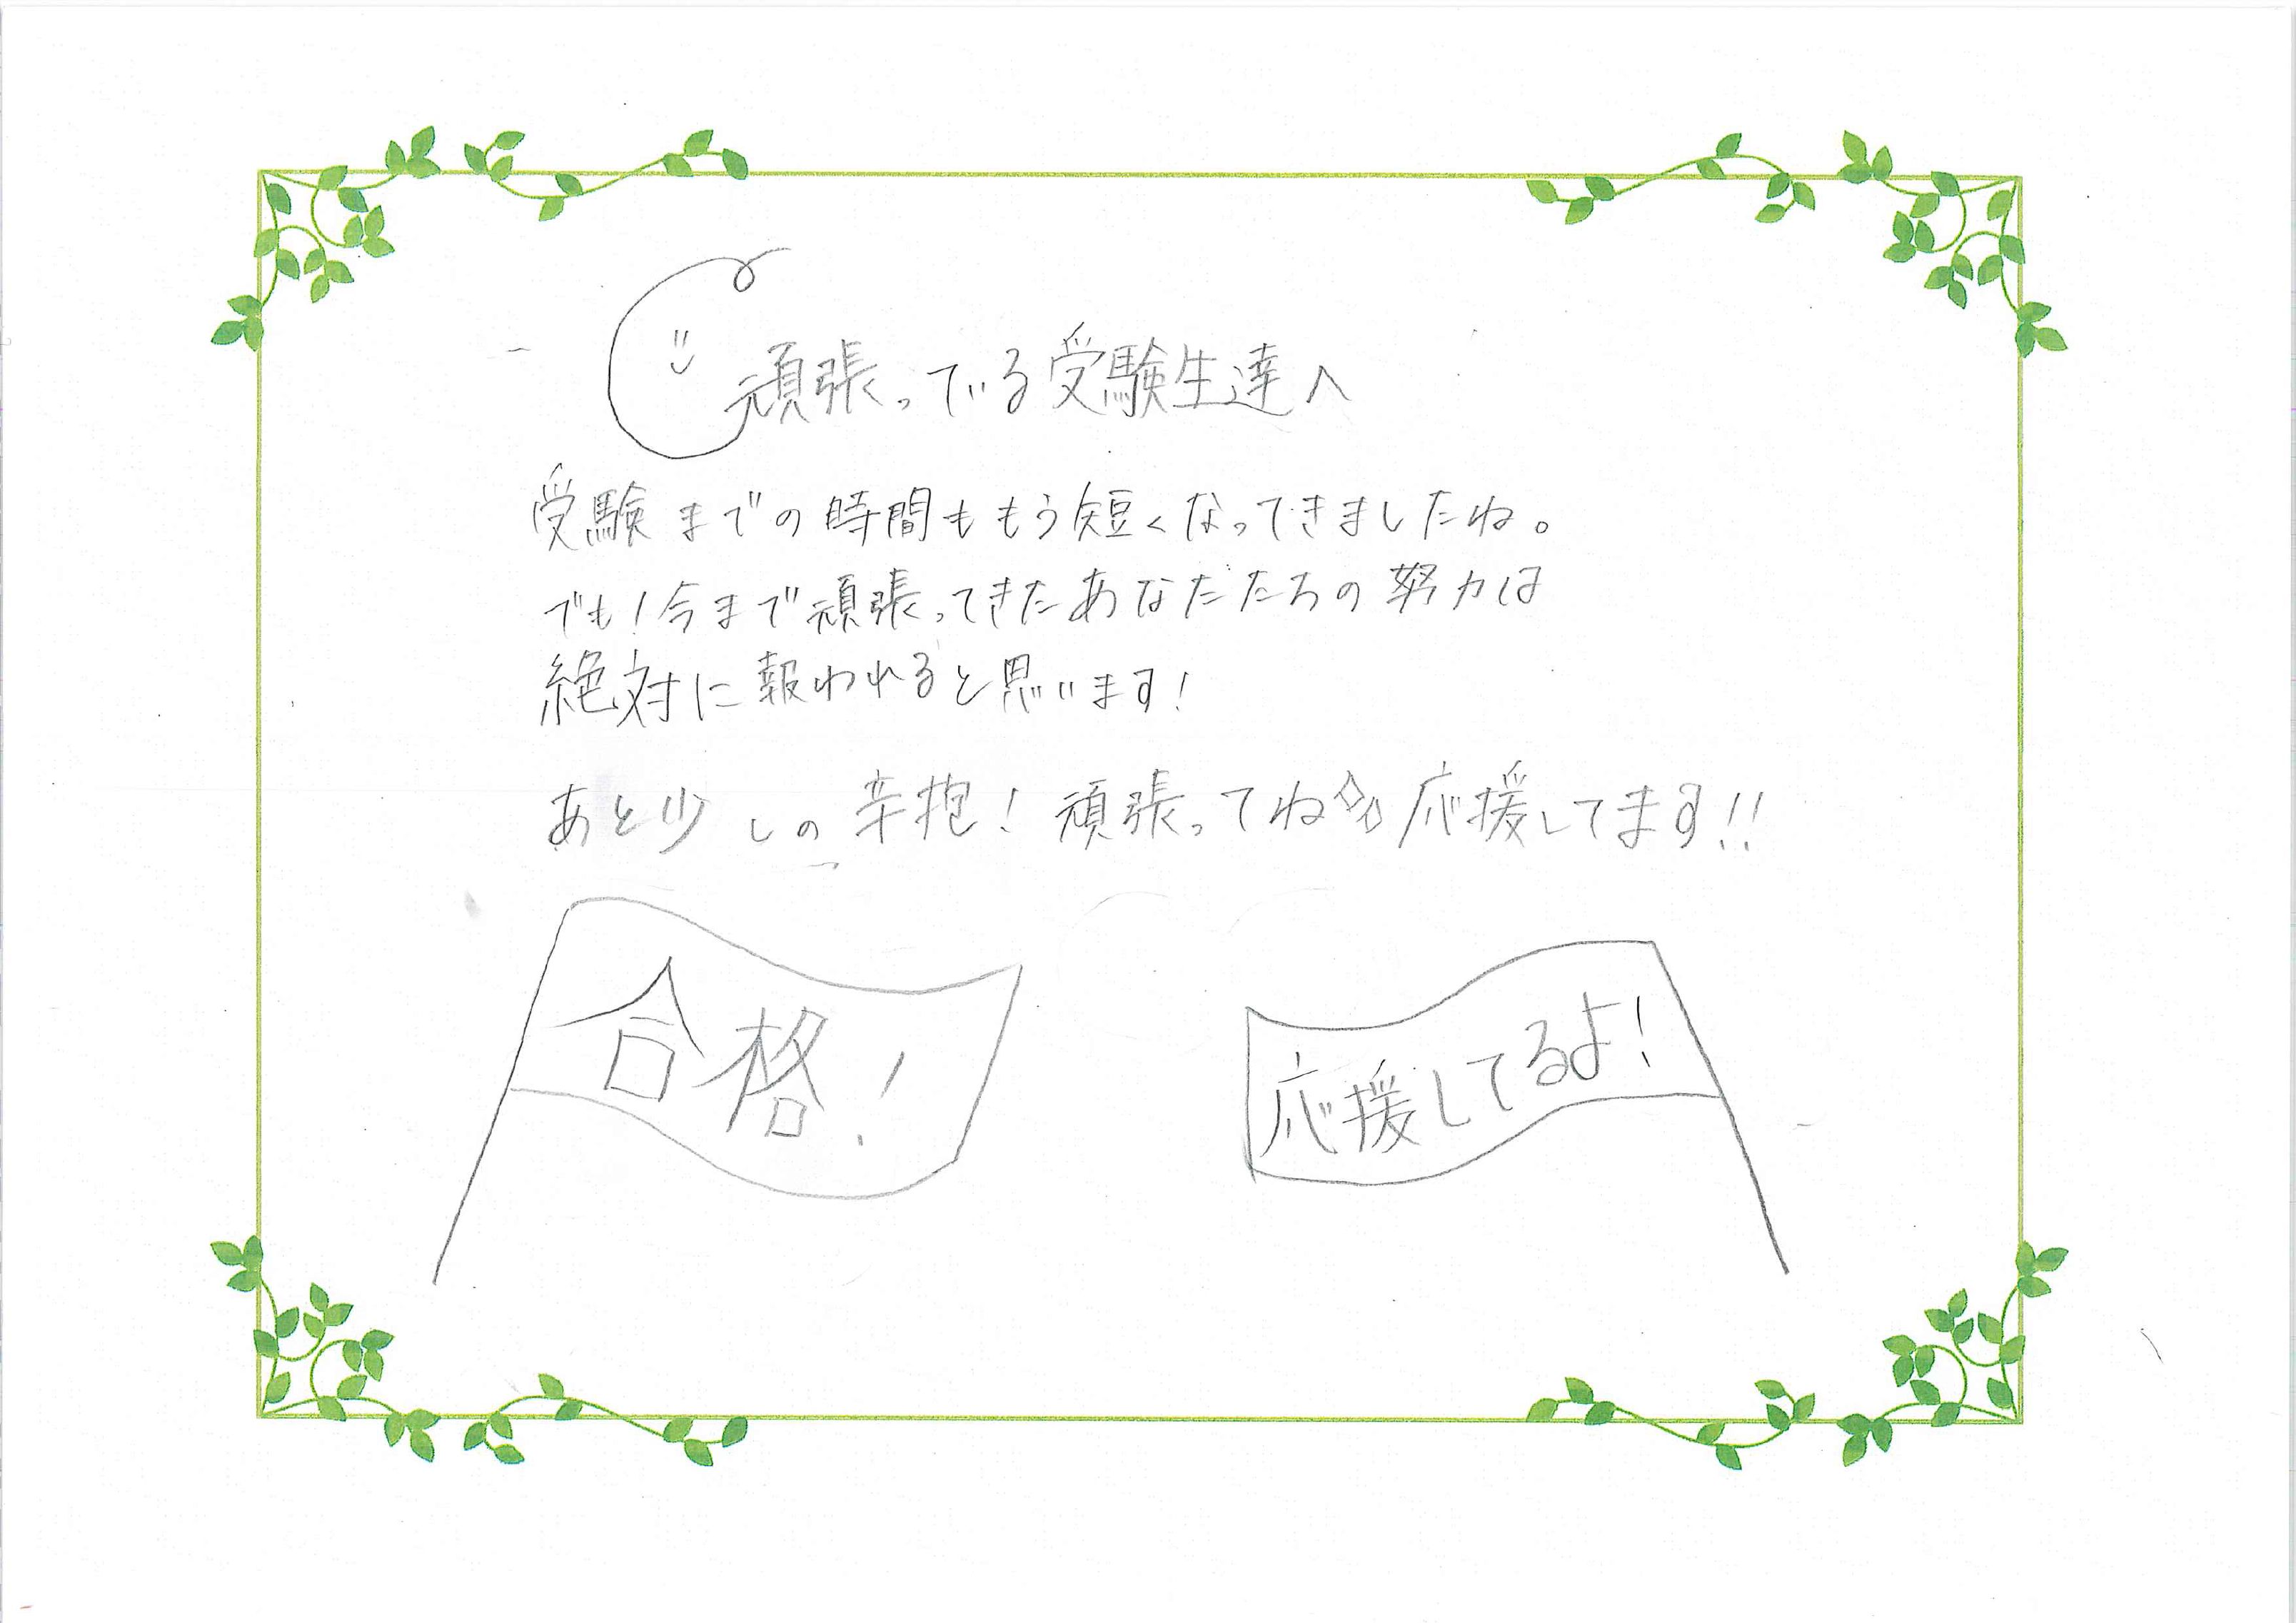 頑張っている受験生達へ
受験までの時間ももう短くなってきましたね。
でも!今まで頑張ってきたあなたたちの努力は
絶対に報われると思います!
あと少しの辛抱!頑張ってね応援してます!!
合格!
応援してるよ!